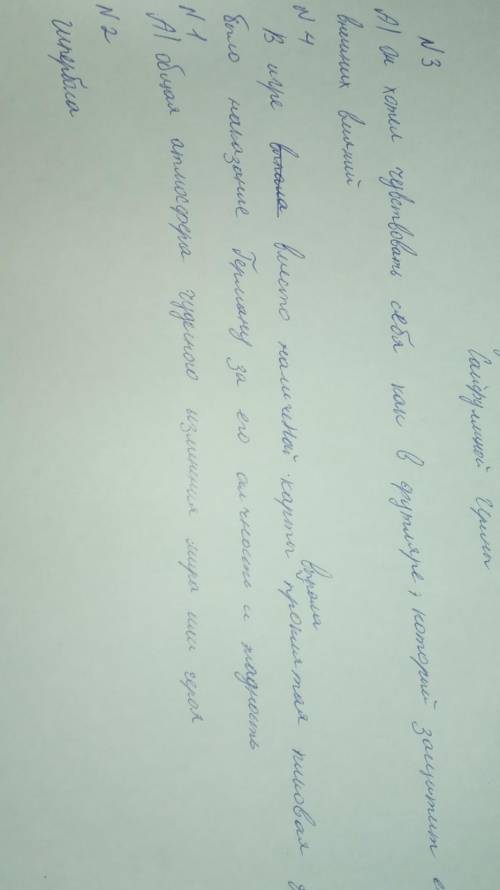 Сайфулиной Ирины
N 3
А) он хотел чувствовать себя как в футляре, который защитит
внешних влияний
N 4
В игре вместо намеченой карты выпала проклятая пиковая
было наказание Герману за его алчность и жадность
N 1
А) общая атмосфера чудесного изменения мира или героя
N 2
Гипербола